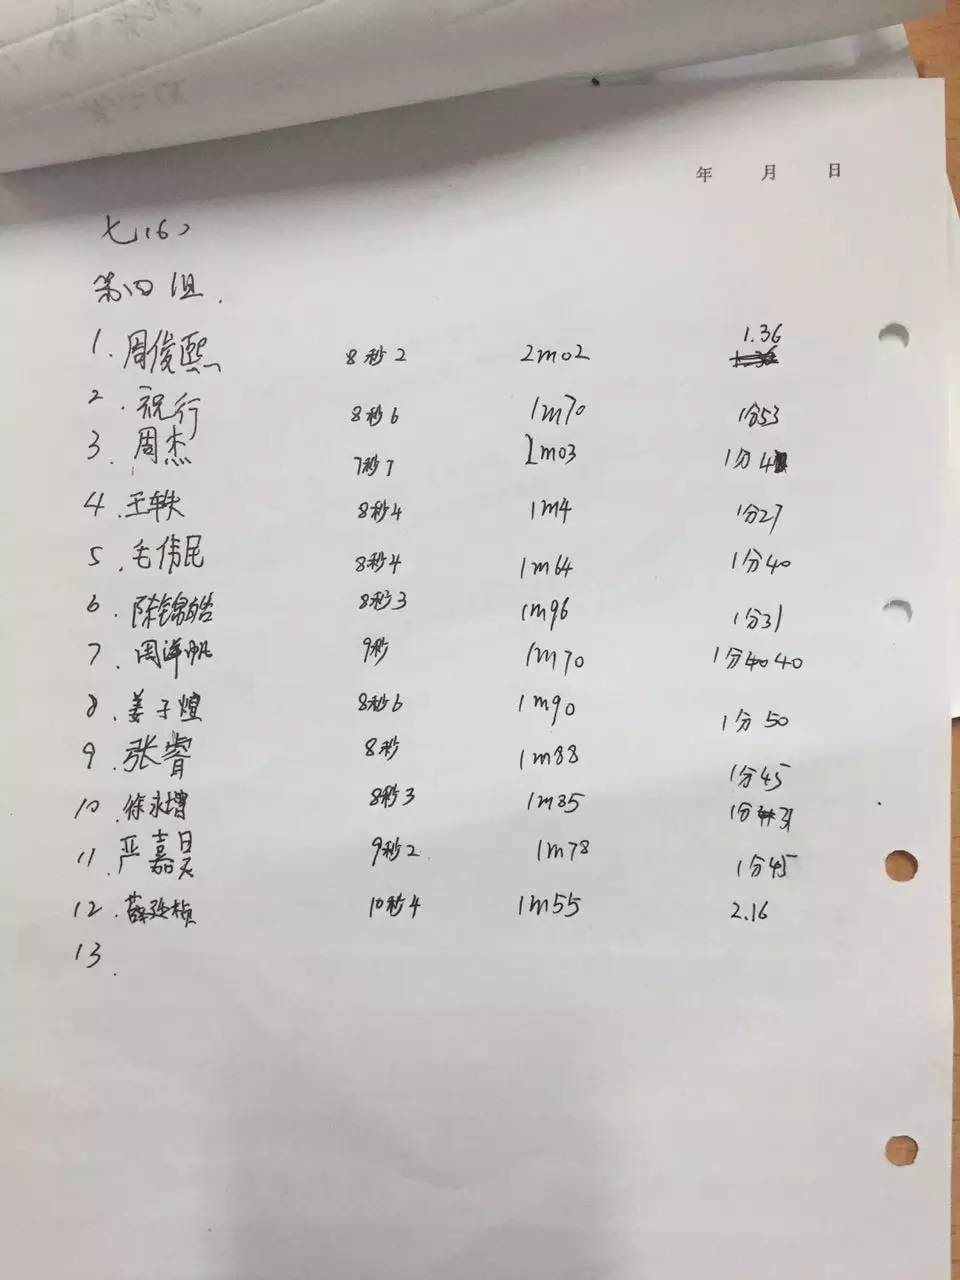 年 月 日
七(6)
第四组.
1. 周俊熙 8秒2 2m02 1.36
2. 祝行 8秒6 1m70 1分53
3. 周杰 7秒7 2m03 1分4
4. 王轶 8秒4 1m4 1分27
5. 毛伟民 8秒4 1m64 1分40
6. 陈锦皓 8秒3 1m96 1分31
7. 周洋帆 9秒 1m70 1分40
8. 姜子煊 8秒6 1m90 1分50
9. 张睿 8秒 1m88 1分45
10. 徐永增 8秒3 1m85 1分31
11. 严嘉昊 9秒2 1m78 1分45
12. 薛 10秒4 1m55 2.16
13.